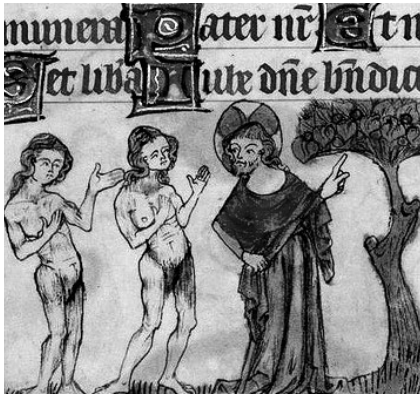 munera Pater nr̄ Et n
Set liba Iube dn̄e bn̄dic